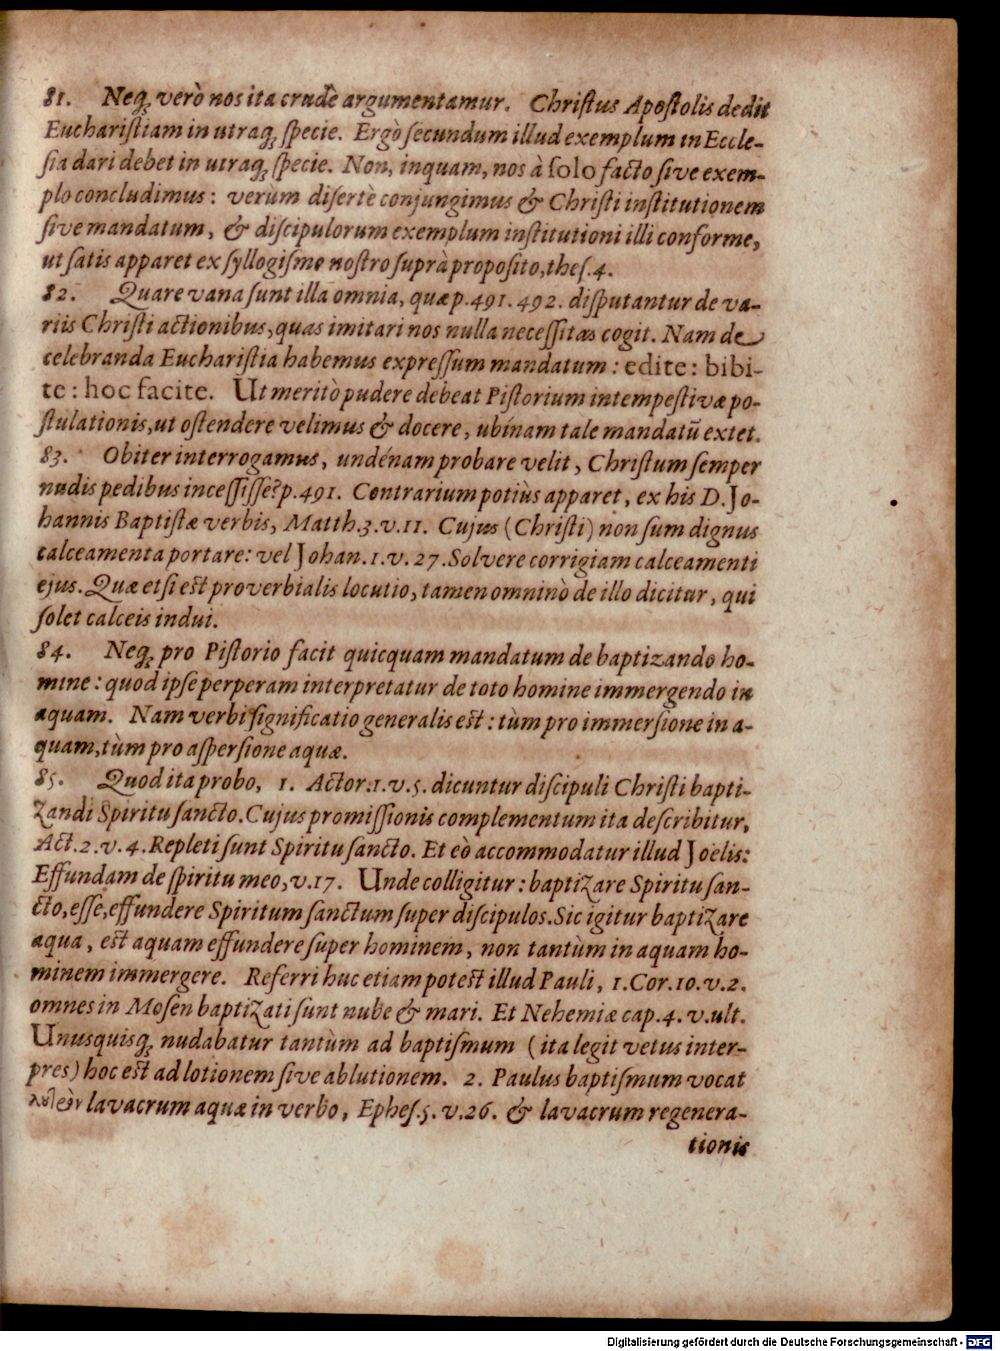 81. Neq; verò nos ita crudè argumentamur. Christus Apostolis dedit
Eucharistiam in utraq; specie. Ergò secundum illud exemplum in Eccle-
sia dari debet in utraq; specie. Non, inquam, nos à solo facto sive exem-
plo concludimus: verùm disertè conjungimus & Christi institutionem
sive mandatum, & discipulorum exemplum institutioni illi conforme,
ut satis apparet ex syllogismo nostro suprà proposito, thes. 4.
82. Quare vana sunt illa omnia, quæ p. 491. 492. disputantur de va-
riis Christi actionibus, quas imitari nos nulla necessitas cogit. Nam de
celebranda Eucharistia habemus expressum mandatum: edite: bibi-
te: hoc facite. Ut meritò pudere debeat Pistorium intempestivæ po-
stulationis, ut ostendere velimus & docere, ubínam tale mandatũ extet.
83. Obiter interrogamus, undénam probare velit, Christum semper
nudis pedibus incessisse? p. 491. Contrarium potiùs apparet, ex his D. Jo-
hannis Baptistæ verbis, Matth. 3. v. 11. Cujus (Christi) non sum dignus
calceamenta portare: vel Johan. 1. v. 27. Solvere corrigiam calceamenti
ejus. Quæ etsi est proverbialis locutio, tamen omninò de illo dicitur, qui
solet calceis indui.
84. Neq; pro Pistorio facit quicquam mandatum de baptizando ho-
mine: quod ipse perperam interpretatur de toto homine immergendo in
aquam. Nam verbi significatio generalis est: tùm pro immersione in a-
quam, tùm pro aspersione aquæ.
85. Quod ita probo, 1. Actor. 1. v. 5. dicuntur discipuli Christi bapti-
zandi Spiritu sancto. Cujus promissionis complementum ita describitur,
Act. 2. v. 4. Repleti sunt Spiritu sancto. Et eò accommodatur illud Joelis:
Effundam de spiritu meo, v. 17. Unde colligitur: baptizare Spiritu san-
cto, esse, effundere Spiritum sanctum super discipulos. Sic igitur baptizare
aqua, est aquam effundere super hominem, non tantùm in aquam ho-
minem immergere. Referri huc etiam potest illud Pauli, 1. Cor. 10. v. 2.
omnes in Mosen baptizati sunt nube & mari. Et Nehemiæ cap. 4. v. ult.
Unusquisq; nudabatur tantùm ad baptismum (ita legit vetus inter-
pres) hoc est ad lotionem sive ablutionem. 2. Paulus baptismum vocat
lavacrum aquæ in verbo, Ephes. 5. v. 26. & lavacrum regenera-
tionis
Digitalisierung gefördert durch die Deutsche Forschungsgemeinschaft - DFG